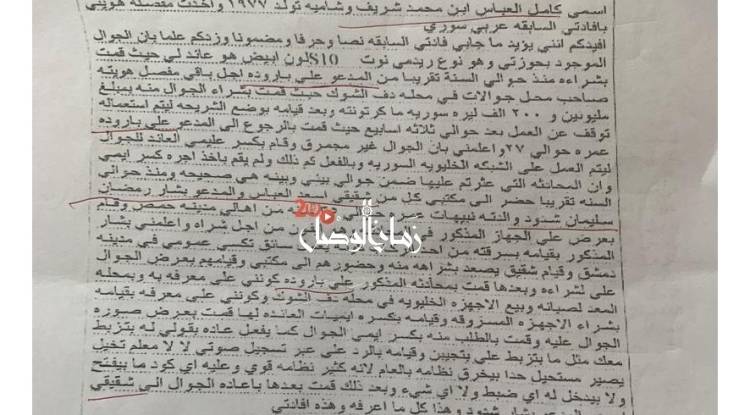 اسمي كامل العباس ابن محمد شريف وشاميه تولد ١٩٧٧ واخذت مفصله هويتي
بافادتي السابقه عربي سوري
افيدكم انني يؤيد ما جابي فادتي السابقه نصا وحرفا ومضمونا وزدكم علما بان الجوال
الموجود بحوزتي وهو نوع ريدمي نوت S10 لون ابيض هو عاند لي حيث قمت
بشراءه منذ حوالي السنة تقريبا من المدعو علي باروده اجل باقي مفصل هويته
صاحب محل جوالات في محله دف الشوك حيث قمت بشراء الجوال منه بمبلغ
مليونين و ٢٠٠ الف ليره سوريه ما كرتونته وبعد قيامه بوضع الشريحه ليتم استعماله
توقف عن العمل بعد حوالي ثلاثه اسابيع حيث قمت بالرجوع الى المدعو علي باروده
عمره حوالي ٢٧ واعلمني بان الجوال غير مجمرق وقام بكسر عليمي العاند للجوال
ليتم العمل على الشبكه الخليويه السوريه وبالفعل تم ذلك ولم يقم باخذ اجره كسر ايمي
وان المحادثه التي عثرتم عليها ضمن جوالي بيني وبينه هي صحيحه ومنذ حوالي
السنه تقريبا حضر الى مكتبي كل من شقيقي اسعد العباس والمدعو بشار رمضان
سليمان شدود والدته نبيهات من اهالي مدينه حمص وقام
بعرض علي الجهاز المذكور من اجل شراه واعلمني بشار
المذكور بقيامه بسرقته من احد سائق تكسي عمومي في مدينه
دمشق وقيام شقيق يصعد بشراهه منه وحضور هم الى مكتبي وقيامهم بعرض الجوال
على لشراءه وبعدها قمت بمحادثه المذكور علي باروده كونني على معرفه به وبمحله
المعد لصيانه وبيع الاجهزه الخليويه في محله دف الشوك وكونني على معرفه بقيامه
بشراء الاجهزه المسروقه وقيامه بكسره ايميات العائده لها قمت بعرض صوره
الجوال عليه وقمت بالطلب منه بكسر ايمي الجوال كما يفعل عاده بقولي له بتزبط
معك مثل ما بتزبط على بتجيبن وقيامه بالرد على عبر تسجيل صوتي لا لا معلم تخيل
يصير مستحيل حدا بيخرق نظامه بالعام لانه كثير نظامه قوي وعليه اي كود ما بيفتح
ولا بيدخل له اي ضبط ولا اي شيء وبعد ذلك قمت بعدها باعاده الجوال الى شقيقي
بشار شدود وهذا كل ما اعرفه وهذه افادتي
زمان الوصل